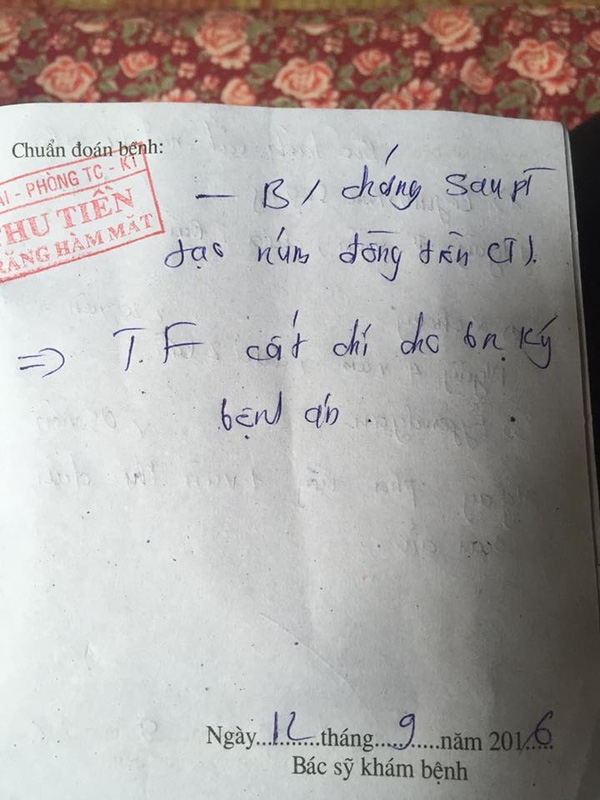 Chuẩn đoán bệnh:
AI - PHÒNG TC - KT
THU TIỀN
RĂNG HÀM MẶT
— B/chứng sau pT
tạo núm đồng tiền (T).
=> T.F cắt chỉ cho bn. Ký
bệnh án
Ngày 12 tháng 9 năm 2016
Bác sỹ khám bệnh